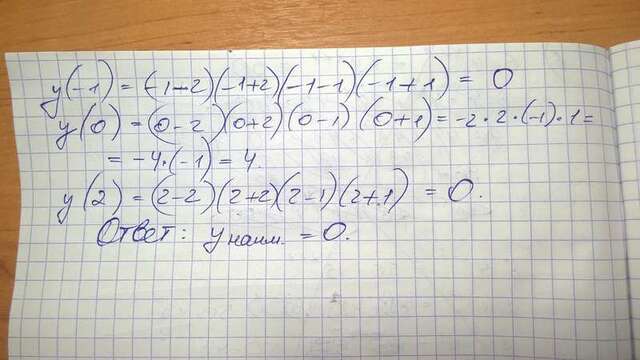 y(-1) = (-1-2)(-1+2)(-1-1)(-1+1) = 0
y(0) = (0-2)(0+2)(0-1)(0+1) = -2·2·(-1)·1 =
= -4·(-1) = 4
y(2) = (2-2)(2+2)(2-1)(2+1) = 0.
Ответ: y наим. = 0.